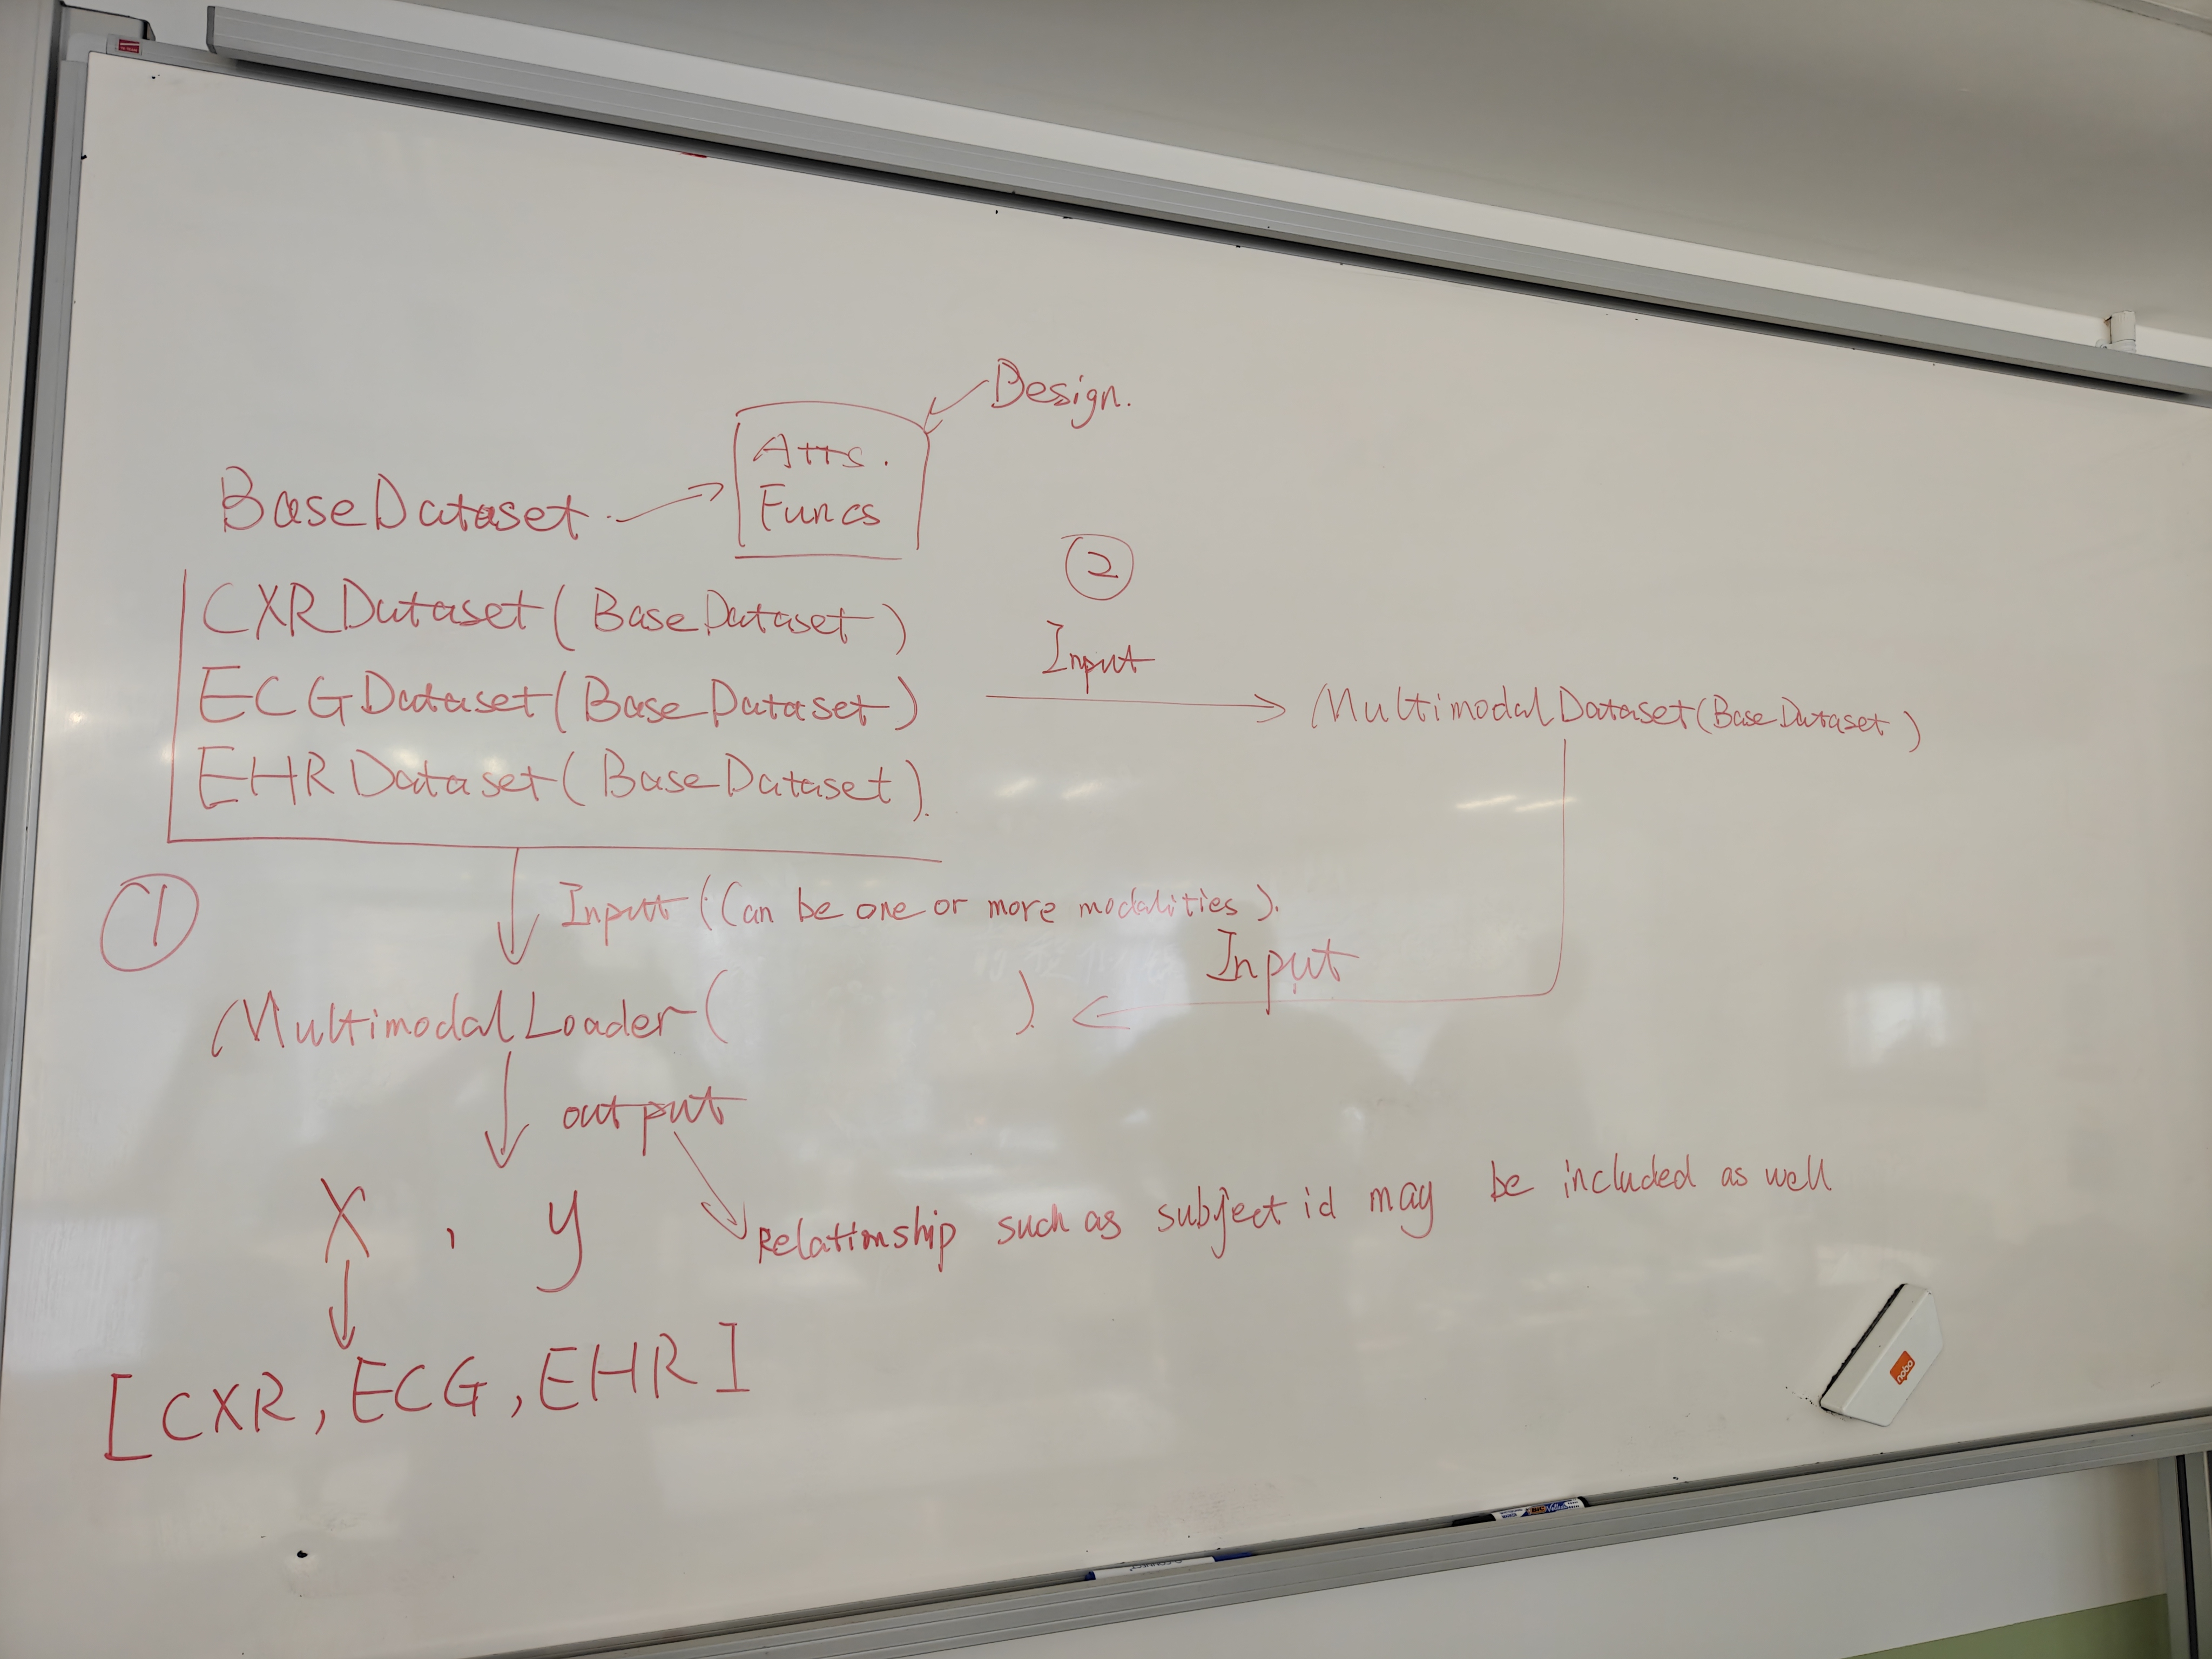 Design.
Atts.
Funcs
BaseDataset
②
CXRDataset(BaseDataset)
Input
ECGDataset(BaseDataset)
MultimodalDataset(BaseDataset)
EHRDataset(BaseDataset).
①
Input (Can be one or more modalities).
Input
MultimodalLoader( )
output
X , y
Relationship such as subject id may be included as well
[CXR, ECG, EHR]
nobo